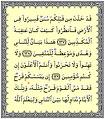 قَدْ خَلَتْ مِن قَبْلِكُمْ سُنَنٌ فَسِيرُوا فِي
الْأَرْضِ فَانظُرُوا كَيْفَ كَانَ عَاقِبَةُ
الْمُكَذِّبِينَ ١٣٧ هَٰذَا بَيَانٌ لِّلنَّاسِ
وَهُدًى وَمَوْعِظَةٌ لِّلْمُتَّقِينَ ١٣٨ وَلَا
تَهِنُوا وَلَا تَحْزَنُوا وَأَنتُمُ الْأَعْلَوْنَ إِن
كُنتُم مُّؤْمِنِينَ ١٣٩ إِن يَمْسَسْكُمْ
قَرْحٌ فَقَدْ مَسَّ الْقَوْمَ قَرْحٌ مِّثْلُهُ وَتِلْكَ
الْأَيَّامُ نُدَاوِلُهَا بَيْنَ النَّاسِ وَلِيَعْلَمَ اللَّهُ